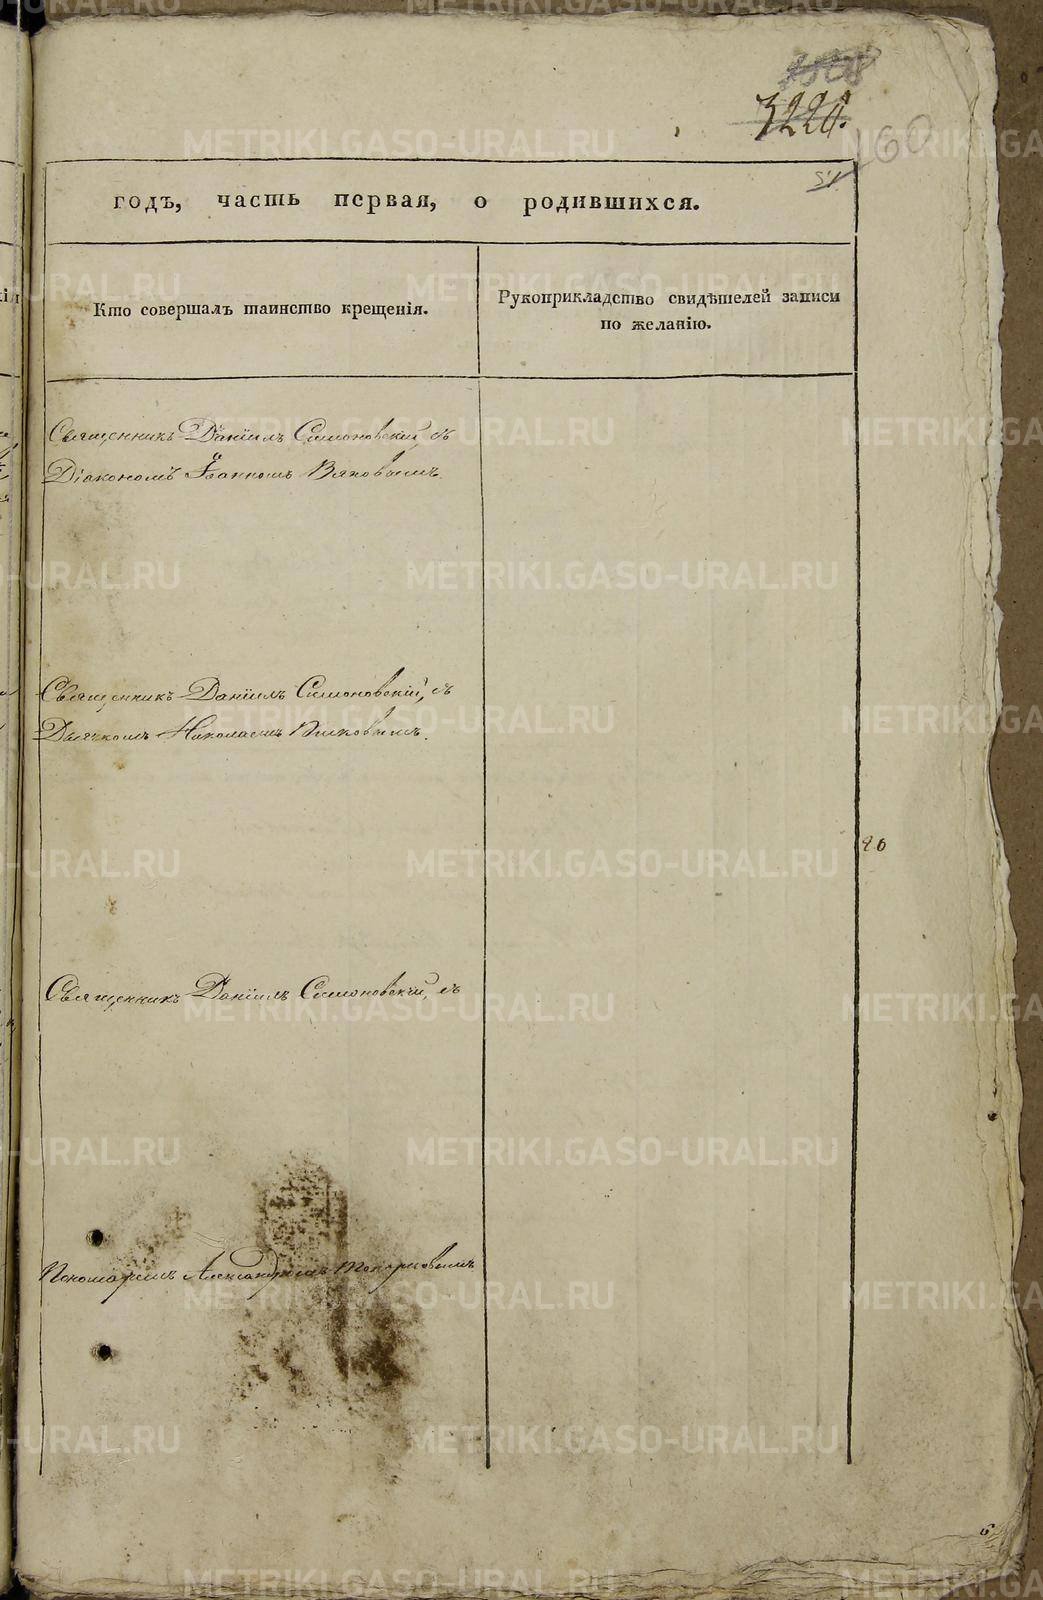 3220.
160
51
годъ, часть первая, о родившихся.
Кто совершалъ таинство крещенія.
Рукоприкладство свидѣтелей записи
по желанію.
Священникъ Даніилъ Симоновскій, съ
Діакономъ Іоанномъ
Священникъ Даніилъ Симоновскій, съ
Дьячкомъ Николаемъ
20
Священникъ Даніилъ Симоновскій, съ
Пономаремъ Александромъ Топорковымъ
METRIKI.GASO-URAL.RU